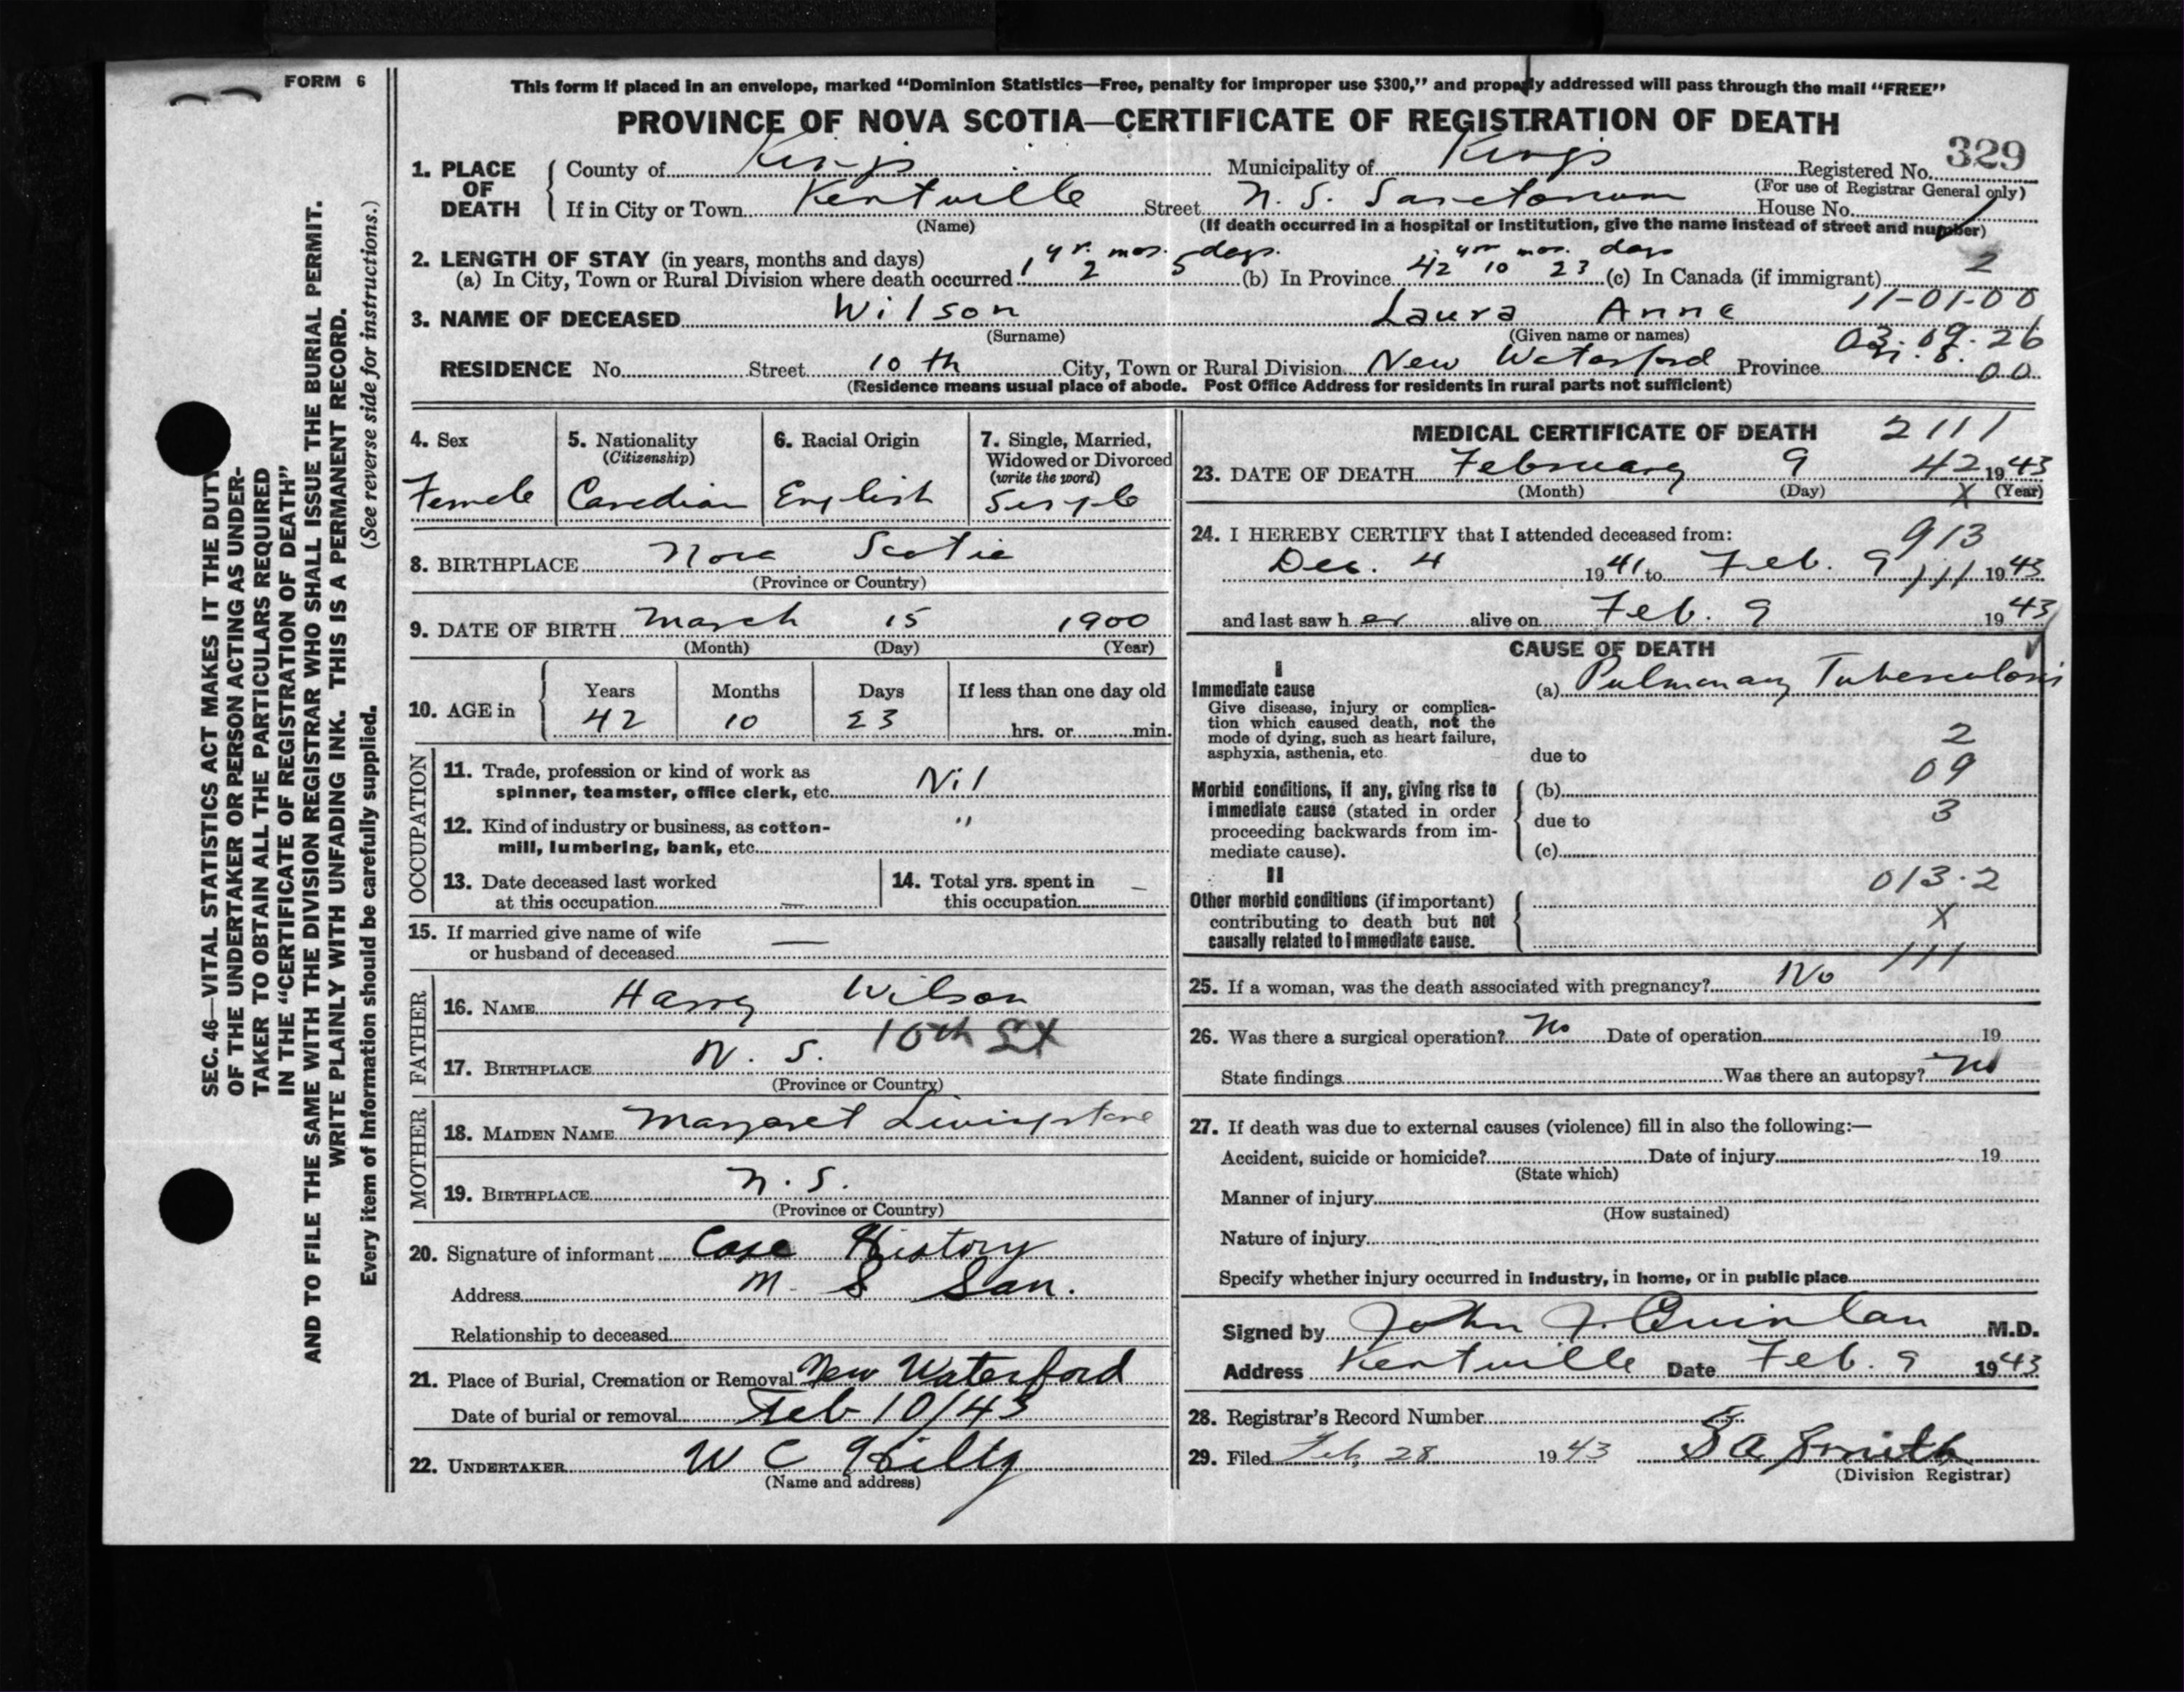 FORM 6
This form if placed in an envelope, marked “Dominion Statistics—Free, penalty for improper use $300,” and properly addressed will pass through the mail “FREE”
PROVINCE OF NOVA SCOTIA—CERTIFICATE OF REGISTRATION OF DEATH
329
1. PLACE OF DEATH County of Kings Municipality of Kings Registered No.
(For use of Registrar General only)
If in City or Town Kentville Street N. S. Sanatorium House No.
(Name) (If death occurred in a hospital or institution, give the name instead of street and number)
2. LENGTH OF STAY (in years, months and days)
(a) In City, Town or Rural Division where death occurred 1 yr. 2 mos. 5 days. (b) In Province 42 yrs 10 mos. 23 days (c) In Canada (if immigrant) 2
11-01-00
3. NAME OF DECEASED Wilson Laura Anne
(Surname) (Given name or names)
03.09.26
RESIDENCE No. Street 10 th City, Town or Rural Division New Waterford Province N.S. 00
(Residence means usual place of abode. Post Office Address for residents in rural parts not sufficient)
4. Sex Female
5. Nationality (Citizenship) Canadian
6. Racial Origin English
7. Single, Married, Widowed or Divorced (write the word) Single
8. BIRTHPLACE Nova Scotia
(Province or Country)
9. DATE OF BIRTH March 15 1900
(Month) (Day) (Year)
10. AGE in Years 42 Months 10 Days 23 If less than one day old
hrs. or min.
OCCUPATION
11. Trade, profession or kind of work as spinner, teamster, office clerk, etc. Nil
12. Kind of industry or business, as cotton-
mill, lumbering, bank, etc. "
13. Date deceased last worked at this occupation —
14. Total yrs. spent in this occupation —
15. If married give name of wife
or husband of deceased —
FATHER
16. NAME Harry Wilson
10th St
17. BIRTHPLACE N. S.
(Province or Country)
MOTHER
18. MAIDEN NAME Margaret Livingstone
19. BIRTHPLACE N. S.
(Province or Country)
20. Signature of informant Case History
Address N S San.
Relationship to deceased
21. Place of Burial, Cremation or Removal New Waterford
Date of burial or removal Feb 10/43
22. UNDERTAKER W C Hiltz
(Name and address)
MEDICAL CERTIFICATE OF DEATH 2111
23. DATE OF DEATH February 9 42 1943
(Month) (Day) X (Year)
24. I HEREBY CERTIFY that I attended deceased from: 913
Dec. 4 1941 to Feb. 9 111 1943
and last saw her alive on Feb. 9 1943
CAUSE OF DEATH
I
Immediate cause (a) Pulmonary Tuberculosis
Give disease, injury or complica-
tion which caused death, not the
mode of dying, such as heart failure, 2
asphyxia, asthenia, etc. due to
09
Morbid conditions, if any, giving rise to (b)
immediate cause (stated in order 3
proceeding backwards from im- due to
mediate cause). (c)
II
013.2
Other morbid conditions (if important)
contributing to death but not X
causally related to immediate cause.
111
25. If a woman, was the death associated with pregnancy? No
26. Was there a surgical operation? No Date of operation 19
State findings Was there an autopsy? No
27. If death was due to external causes (violence) fill in also the following:—
Accident, suicide or homicide? Date of injury 19
(State which)
Manner of injury
(How sustained)
Nature of injury
Specify whether injury occurred in industry, in home, or in public place
Signed by John J. Quinlan M.D.
Address Kentville Date Feb. 9 1943
28. Registrar's Record Number
29. Filed Feb 28 1943 S A Smith
(Division Registrar)
SEC. 46—VITAL STATISTICS ACT MAKES IT THE DUTY
OF THE UNDERTAKER OR PERSON ACTING AS UNDER-
TAKER TO OBTAIN ALL THE PARTICULARS REQUIRED
IN THE “CERTIFICATE OF REGISTRATION OF DEATH”
AND TO FILE THE SAME WITH THE DIVISION REGISTRAR WHO SHALL ISSUE THE BURIAL PERMIT.
WRITE PLAINLY WITH UNFADING INK. THIS IS A PERMANENT RECORD.
Every item of information should be carefully supplied. (See reverse side for instructions.)